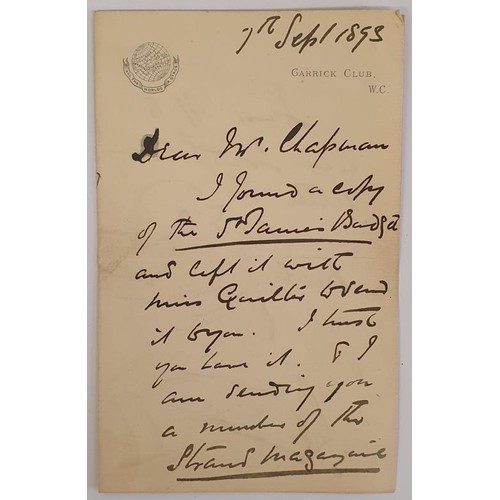 7th Sept 1893
GARRICK CLUB,
W.C.
Dear Mr. Chapman
I found a copy
of the St James's Budget
and left it with
Miss Quilter to send
it to you. I trust
you have it. & I
am sending you
a number of the
Strand Magazine